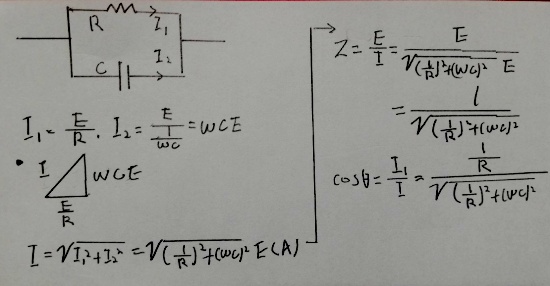 R I₁
C I₂
I₁ = E/R, I₂ = E/(1/ωC) = ωCE
I ωCE
E/R
I = √(I₁²+I₂²) = √((1/R)²+(ωC)²) E (A)
Z = E/I = E/(√((1/R)²+(ωC)²) E)
= 1/√((1/R)²+(ωC)²)
cosθ = I₁/I = (1/R)/√((1/R)²+(ωC)²)